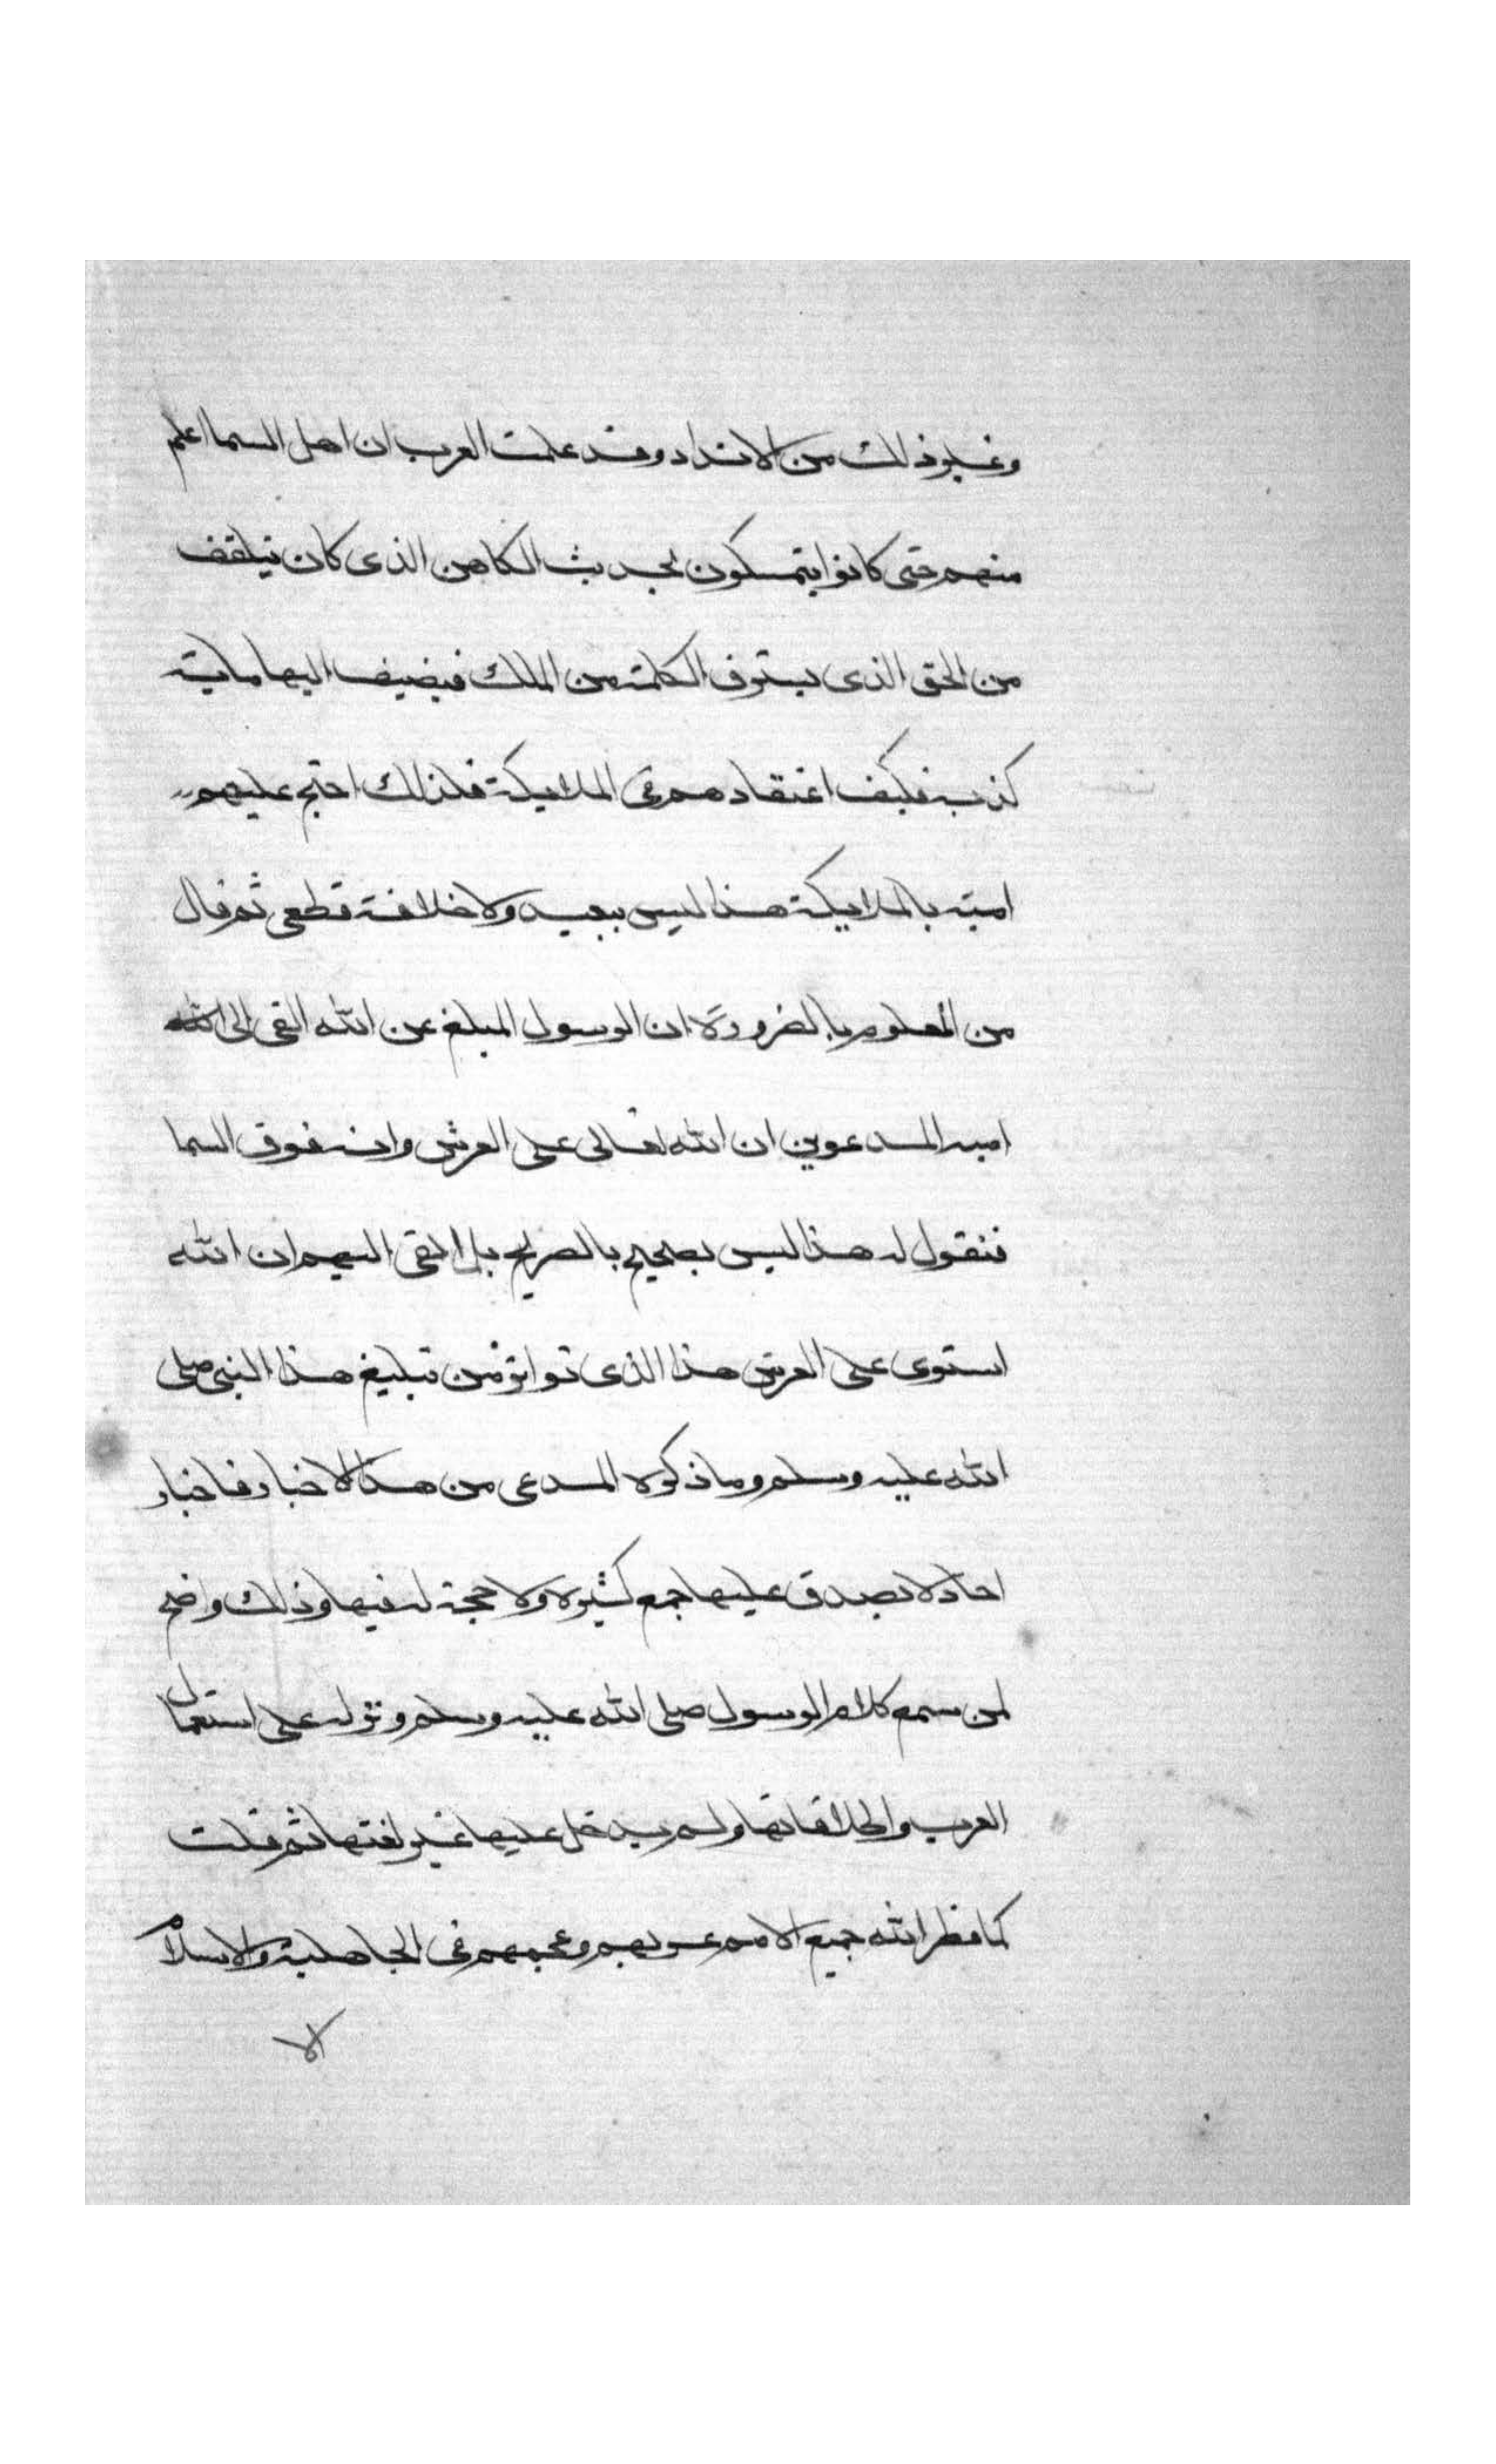 وغيرذلك من الانداد وقد علمت العرب ان اهل السما اعلم
منهم حتى كانوا يتمسكون بحديث الكاهن الذى كان يتلقف
من الجنى الذى يسترق الكلمة من الملك فيضيف اليها ماية
كذبة فكيف اعتقادهم فى الملايكة فلذلك احتج عليهم
امية بالملايكة هذا ليس ببعيد ولا خلافة قطعى ثم قال
من المعلوم بالضرورة ان الرسول المبلغ عن الله القى الى
امته المدعوين ان الله تعالى على العرش وانه فوق السما
فنقول له هذا ليس بصحيح بالصريح بل القى اليهم ان الله
استوى على العرش هذا الذى تواتر من تبليغ هذا النبى صلى
الله عليه وسلم وما ذكره المدعى من هذا الاخبار فاخبار
احاد لا يصدق عليها جمع كثيرة ولا حجة له فيها وذلك واضح
لمن سمع كلام الرسول صلى الله عليه وسلم ونزله على استعمال
العرب واطلاقاتها ولم يدخل عليها غير لغتها ثم قلت
كما فطر الله جميع الامم عربهم وعجمهم فى الجاهلية والاسلام
الا